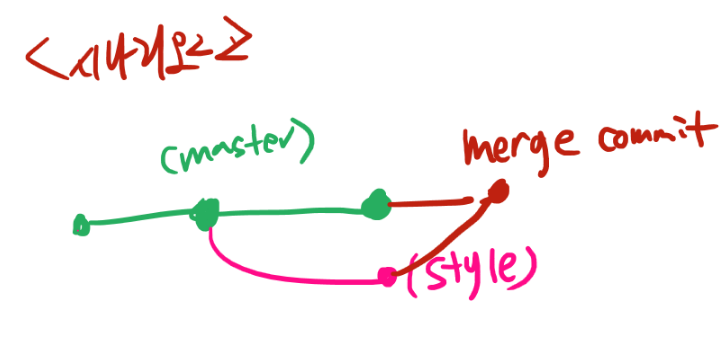 <시나리오 2>
(master)
merge commit
(style)